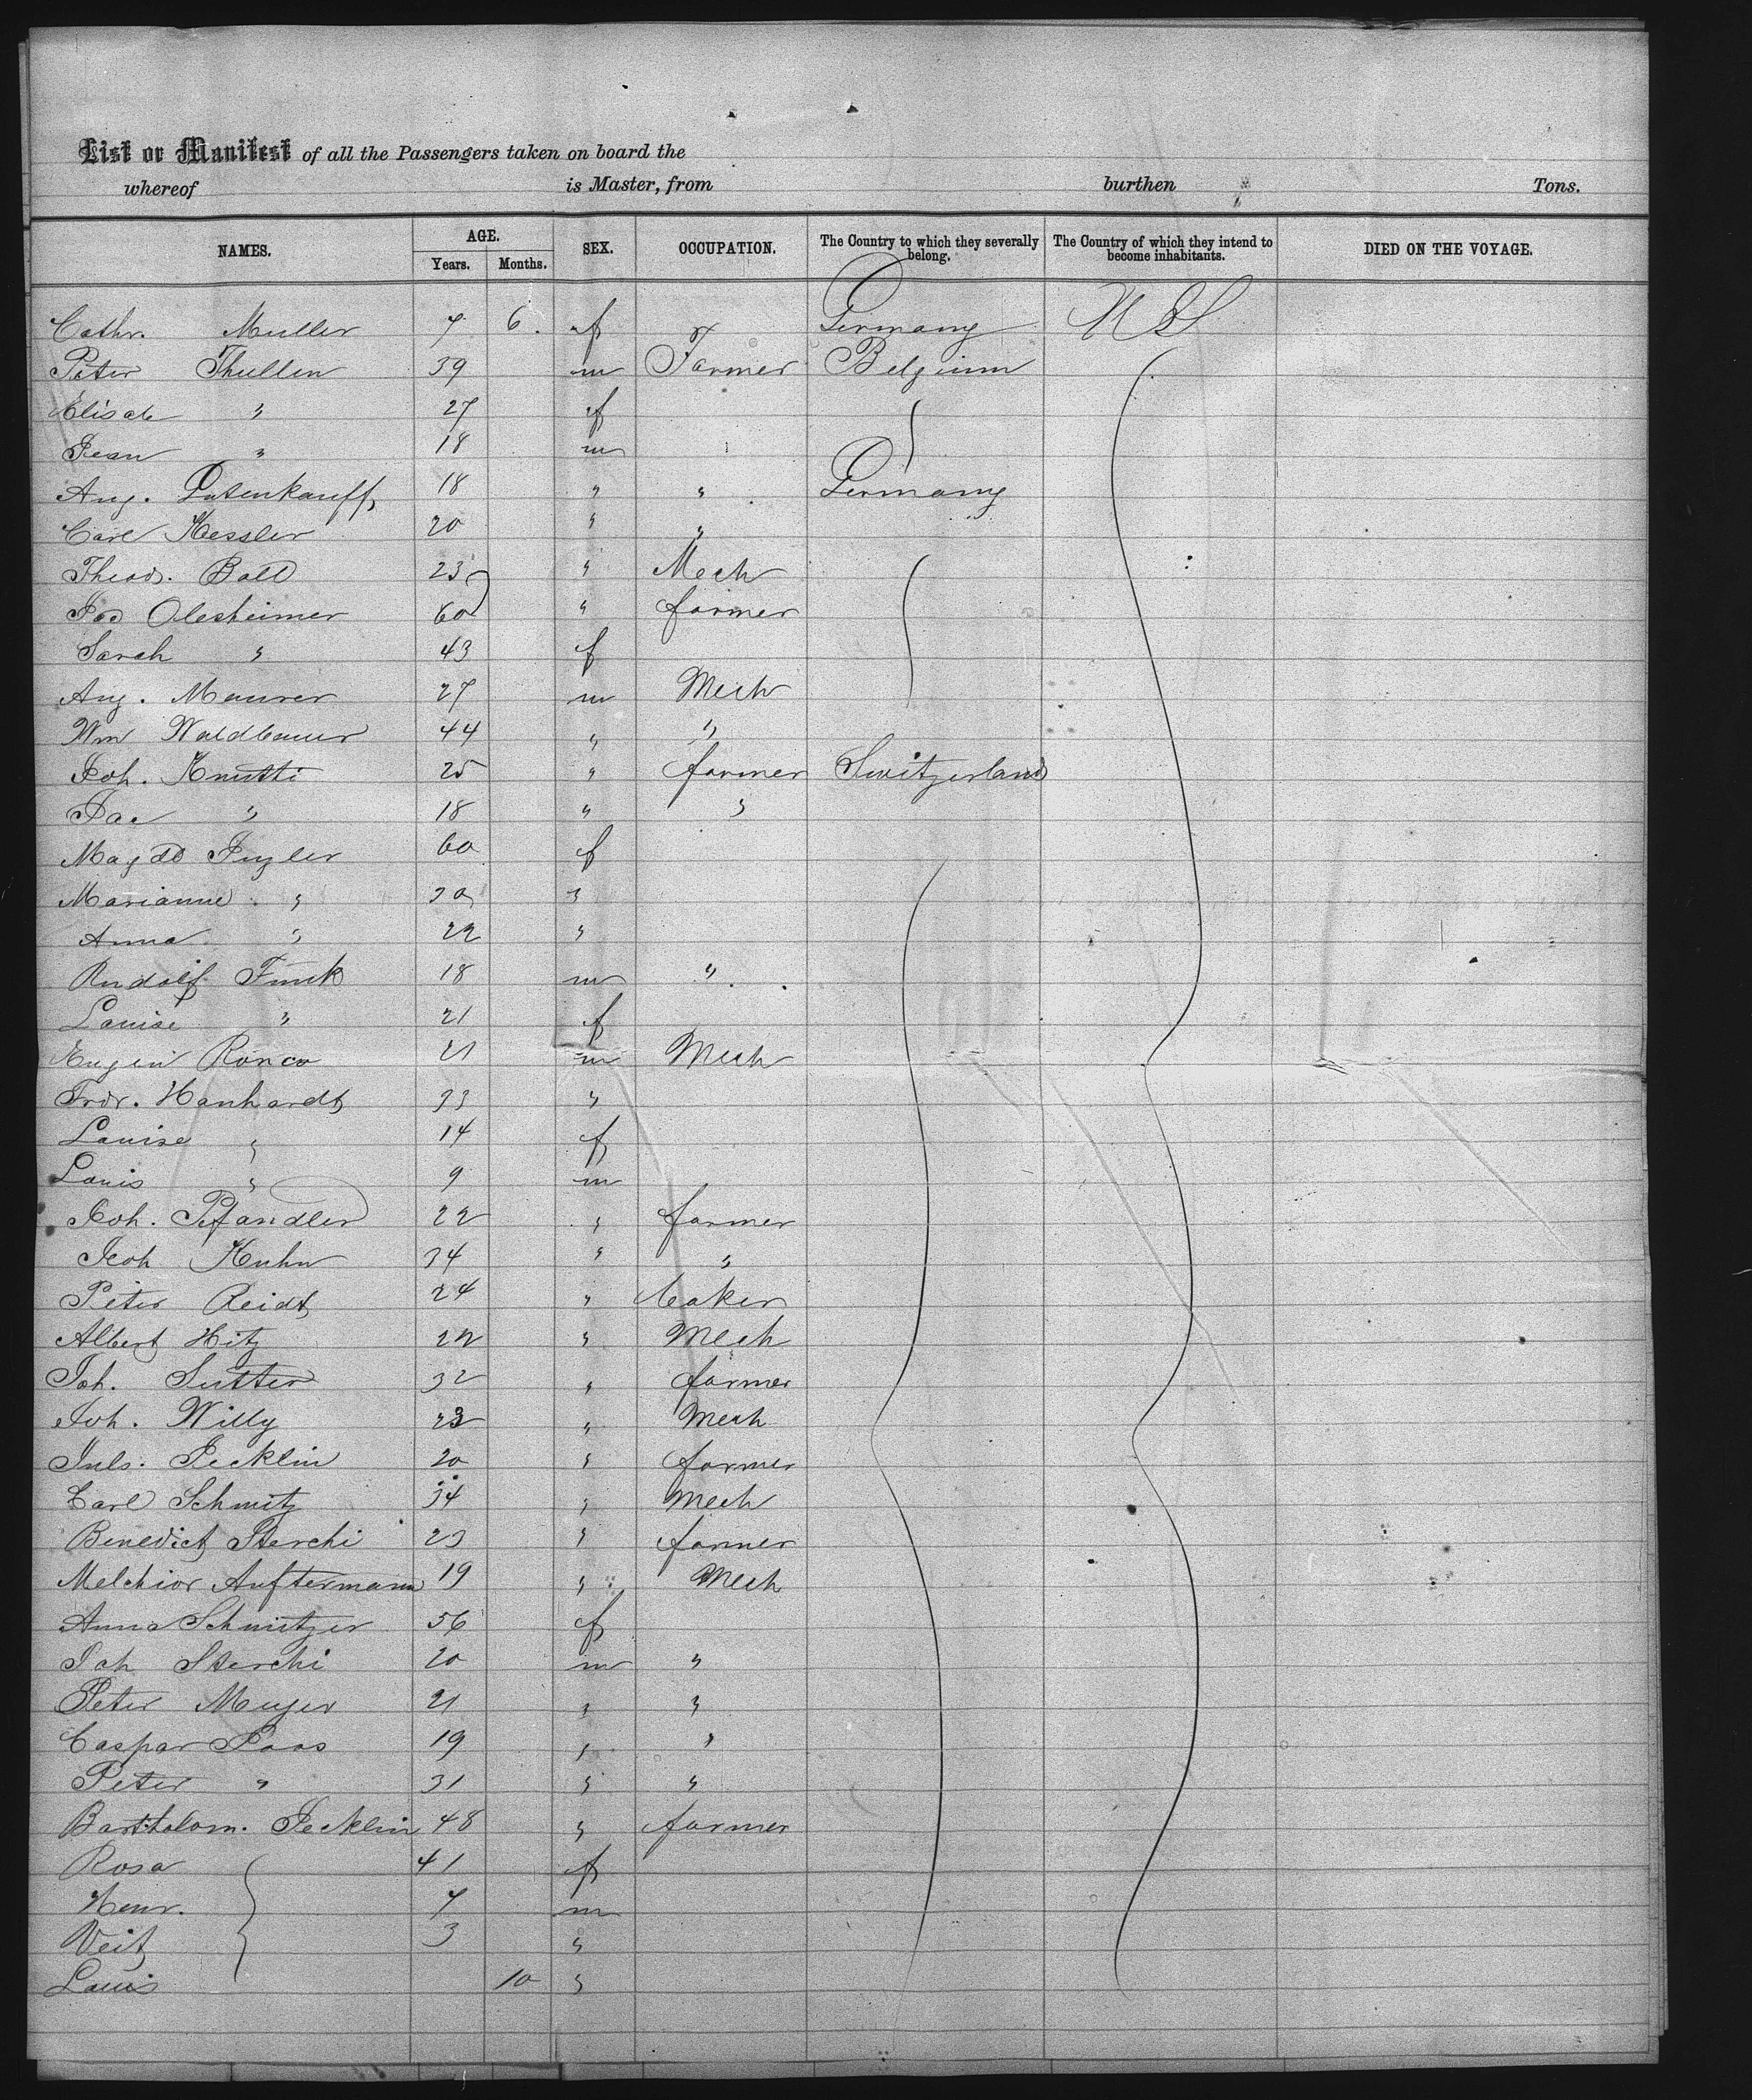 List or Manifest of all the Passengers taken on board the
whereof is Master, from burthen Tons.
NAMES. AGE. Years. Months. SEX. OCCUPATION. The Country to which they severally belong. The Country of which they intend to become inhabitants. DIED ON THE VOYAGE.
Cathr. Muller 7 6. f Germany U S
Peter Thullen 39 m Farmer Belgium
Elisab " 27 f
Jean " 18 m
Aug. 18 " " Germany
Carl Kessler 20 " "
Theod. Boll 23 " Mech
Jos Olesheimer 60 " farmer
Sarah " 43 f
Aug. Maurer 27 m Mech
Wm Waldbauer 44 " "
Joh. Knutti 25 " farmer Switzerland
Jac " 18 " "
Magdd 60 f
Marianne " "
Anna " 22 "
Rudolf Funk 18 m "
Louise " 21 f
Eugen Ronco 21 m Mech
Frdr. Hanhardt 33 "
Louise " 14 f
Louis " 9 m
Joh. Pfandler 22 " farmer
Joh Kuhn 34 " "
Peter Reidt 24 " baker
Albert Hitz 22 " Mech
Joh. Sutter 32 " farmer
Joh. Willy 23 " Mech
Juls. Jecklin 20 " farmer
Carl Schmitz 34 " Mech
Benedict Sterchi 23 " farmer
Melchior Auftermann 19 " Mech
Anna Schmitzer 56 f
Joh Sterchi 20 m "
Peter Meyer 21 " "
Caspar Paas 19 " "
Peter " 31 " "
Bartholom. Jecklin 48 " farmer
Rosa 41 f
Henr. 7 m
Veit 3 "
Louis 10 "